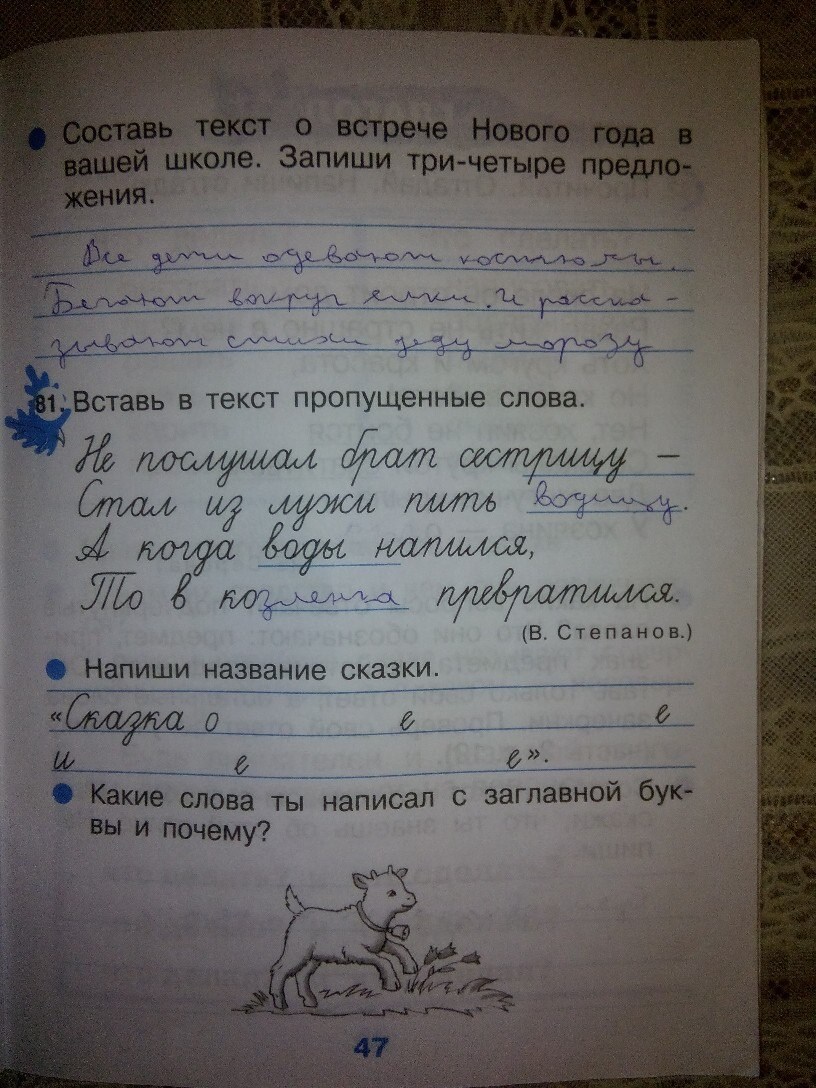 Составь текст о встрече Нового года в
вашей школе. Запиши три-четыре предло-
жения.
Все дети одевают костюмы.
Бегают вокруг елки. И расска-
зывают стихи деду морозу
81. Вставь в текст пропущенные слова.
Не послушал брат сестрицу –
Стал из лужи пить водицу.
А когда воды напился,
То в козленка превратился.
(В. Степанов.)
Напиши название сказки.
«Сказка о е е
и е е».
Какие слова ты написал с заглавной бук-
вы и почему?
47